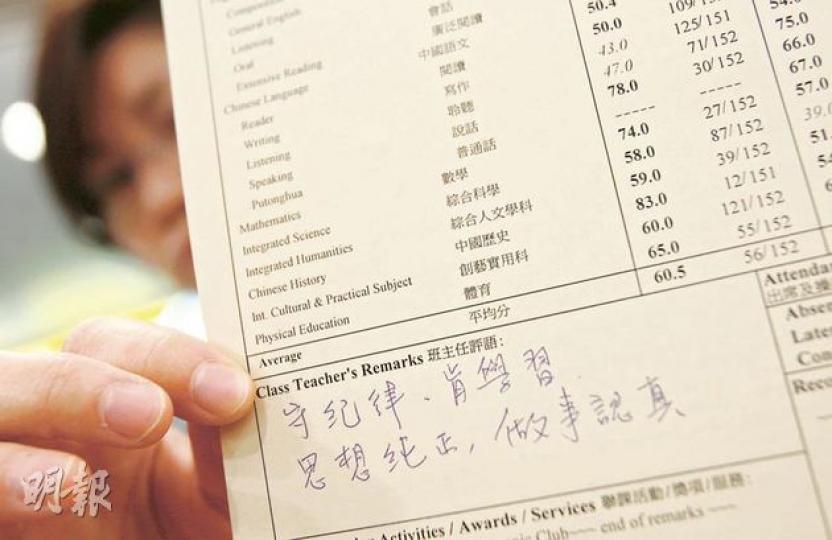 Composition
General English
Listening
Oral
Extensive Reading
Chinese Language
Reader
Writing
Listening
Speaking
Putonghua
Mathematics
Integrated Science
Integrated Humanities
Chinese History
Int. Cultural & Practical Subject
Physical Education
Average
會話
廣泛閱讀
中國語文
閱讀
寫作
聆聽
說話
普通話
數學
綜合科學
綜合人文學科
中國歷史
創藝實用科
體育
平均分
50.4
50.0
43.0
47.0
78.0
-----
74.0
58.0
59.0
83.0
60.0
65.0
60.5
125/151
71/152
30/152
-----
27/152
87/152
39/152
12/151
121/152
55/152
56/152
75.0
66.0
67.0
57.0
39.0
Class Teacher's Remarks 班主任評語:
守紀律、肯學習.
思想純正, 做事認真
Activities / Awards / Services 聯課活動/獎項/服務:
Club~~~ end of remarks ~~~
出席及
Late
明報